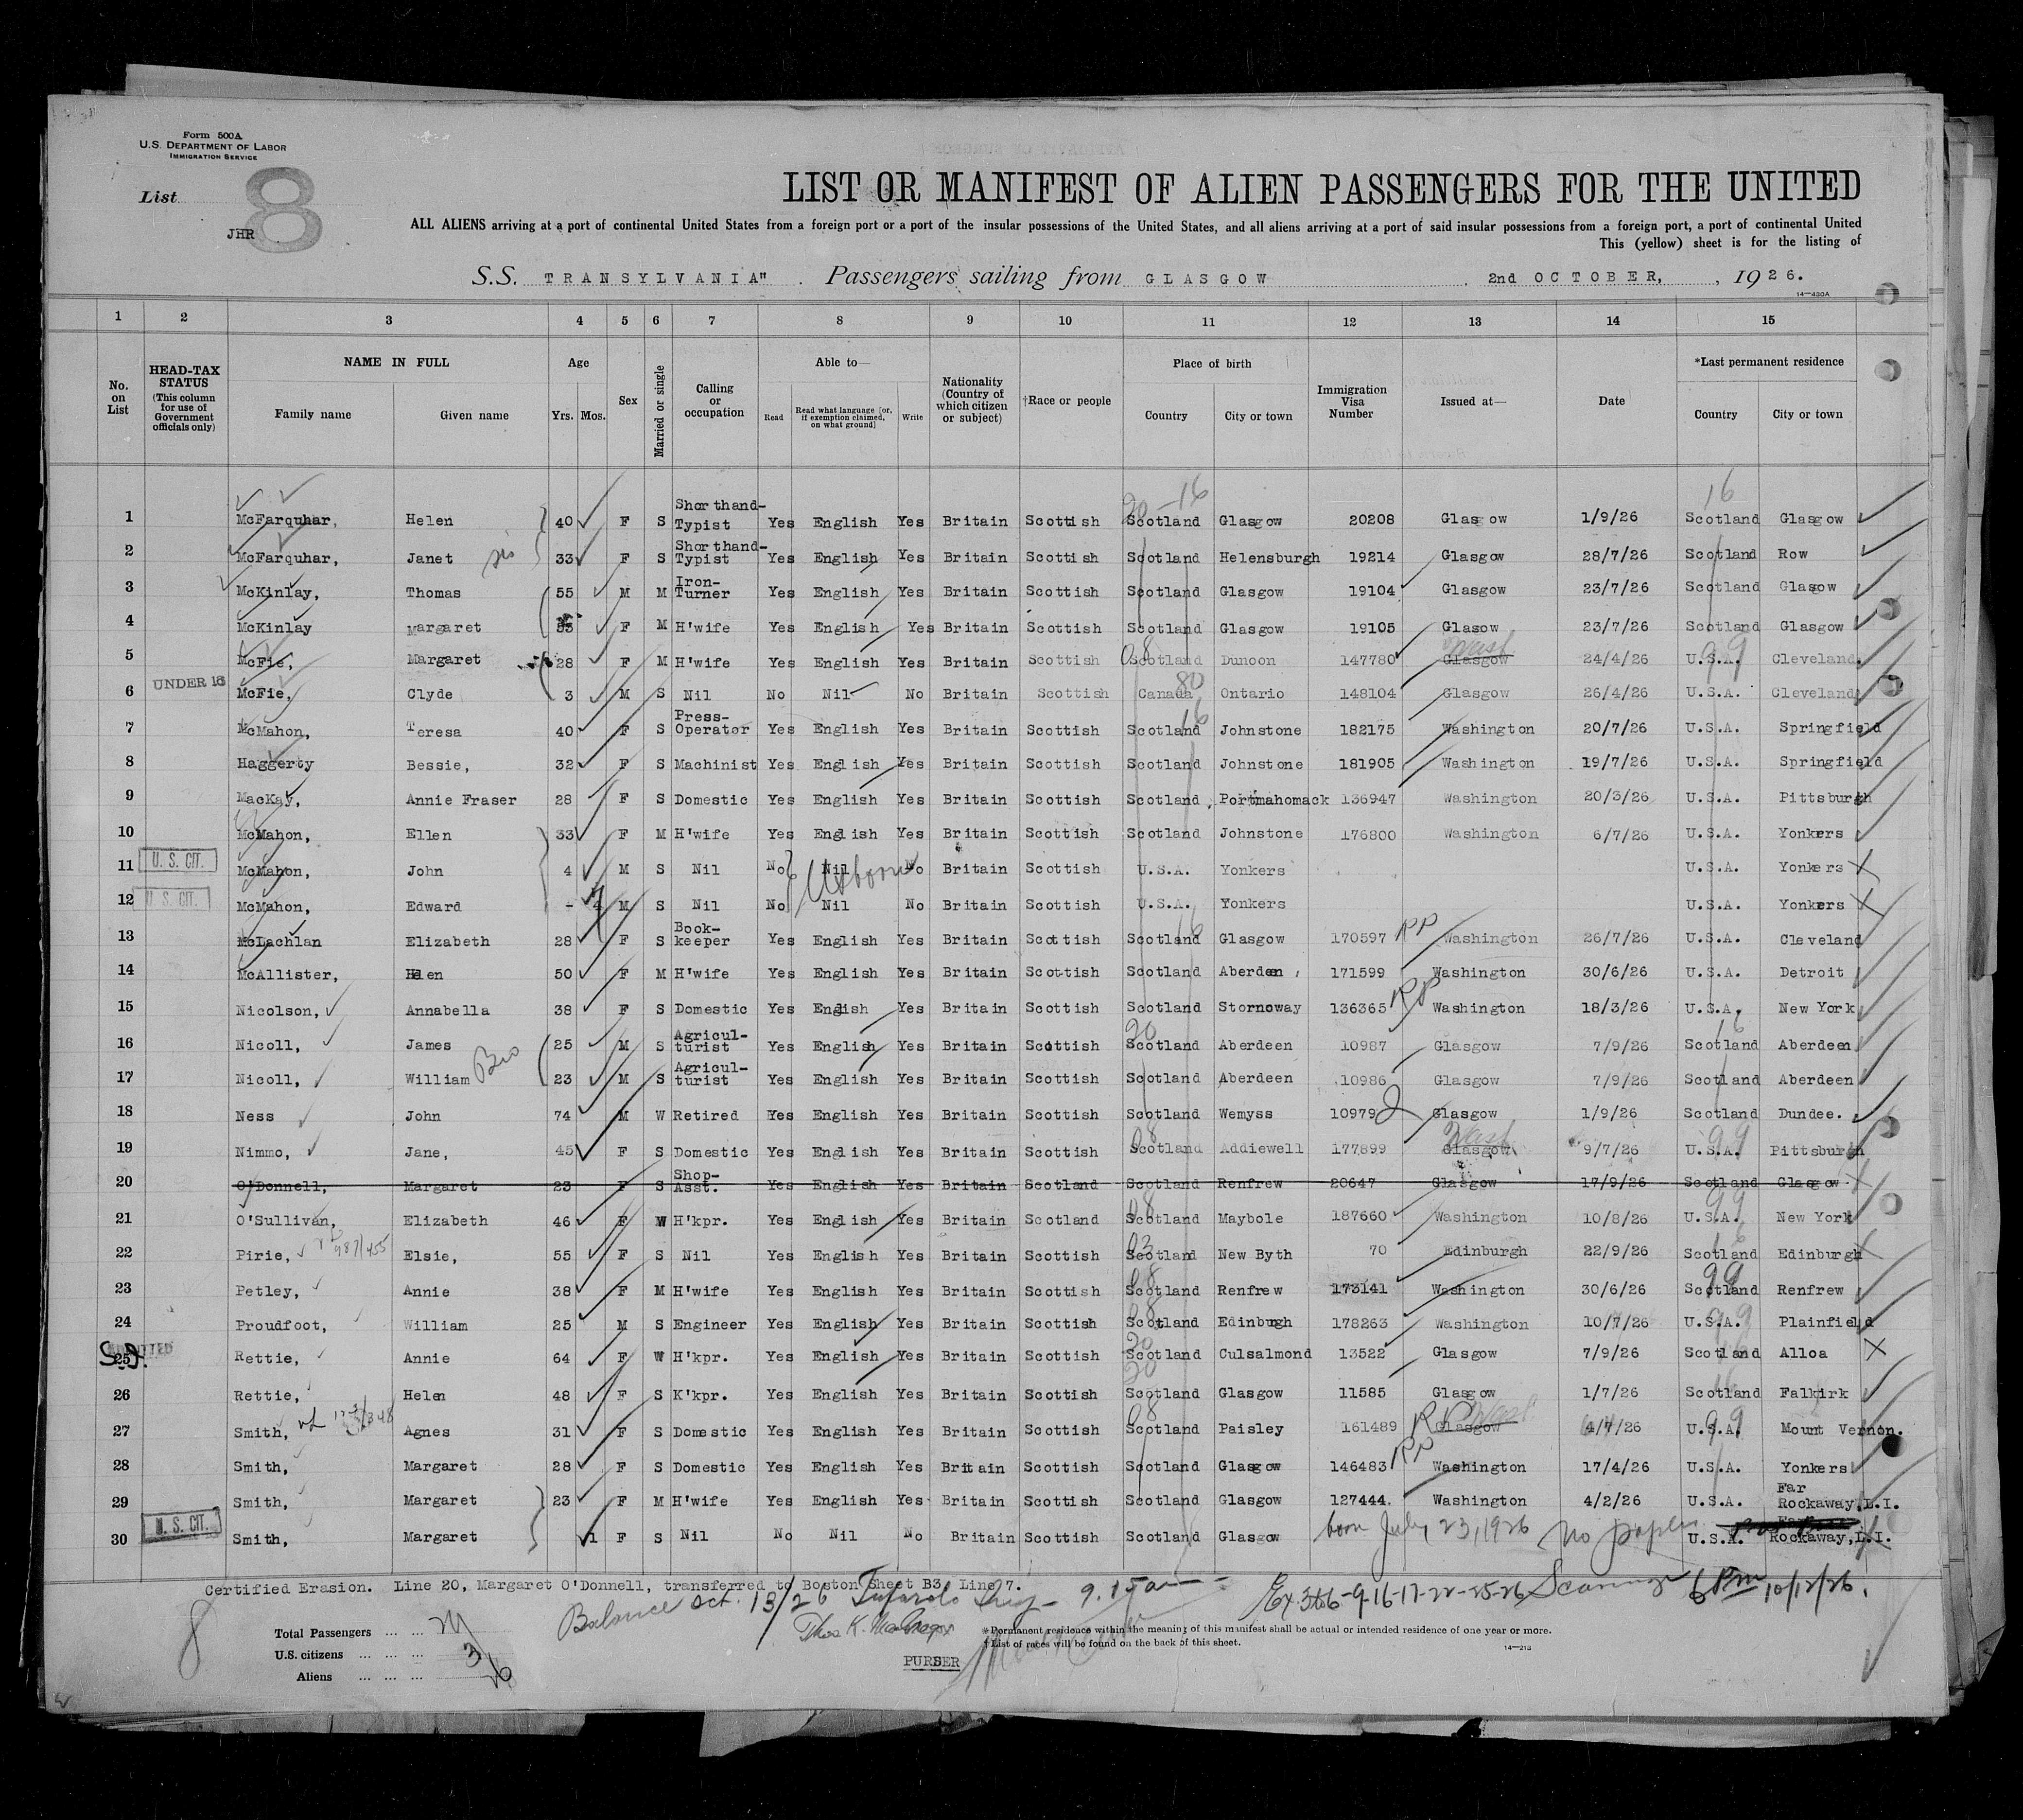 Form 500A
U.S. DEPARTMENT OF LABOR
IMMIGRATION SERVICE
List 8
JHR
LIST OR MANIFEST OF ALIEN PASSENGERS FOR THE UNITED
ALL ALIENS arriving at a port of continental United States from a foreign port or a port of the insular possessions of the United States, and all aliens arriving at a port of said insular possessions from a foreign port, a port of continental United
This (yellow) sheet is for the listing of
S.S. TRANSYLVANIA" . Passengers sailing from GLASGOW . 2nd OCTOBER, , 1926.
14—430A
1 2 3 4 5 6 7 8 9 10 11 12 13 14 15
No. on List HEAD-TAX STATUS (This column for use of Government officials only) NAME IN FULL Family name Given name Age Yrs. Mos. Sex Married or single Calling or occupation Able to— Read Read what language [or, if exemption claimed, on what ground] Write Nationality (Country of which citizen or subject) †Race or people Place of birth Country City or town Immigration Visa Number Issued at— Date *Last permanent residence Country City or town
20-16 16
1 McFarquhar, Helen 40 F S Shorthand-Typist Yes English Yes Britain Scottish Scotland Glasgow 20208 Glasgow 1/9/26 Scotland Glasgow
2 McFarquhar, Janet sis 33 F S Shorthand-Typist Yes English Yes Britain Scottish Scotland Helensburgh 19214 Glasgow 28/7/26 Scotland Row
3 McKinlay, Thomas 55 M M Iron-Turner Yes English Yes Britain Scottish Scotland Glasgow 19104 Glasgow 23/7/26 Scotland Glasgow
4 McKinlay Margaret 53 F M H'wife Yes English Yes Britain Scottish Scotland Glasgow 19105 Glasow 23/7/26 Scotland Glasgow
5 McFie, Margaret 28 F M H'wife Yes English Yes Britain Scottish 08 Scotland Dunoon 147780 Glasgow Wash 24/4/26 U.S.A. 99 Cleveland.
6 UNDER 16 McFie, Clyde 3 M S Nil No Nil No Britain Scottish Canada 80 Ontario 148104 Glasgow 26/4/26 U.S.A. Cleveland
7 McMahon, Teresa 40 F S Press-Operator Yes English Yes Britain Scottish Scotland 16 Johnstone 182175 Washington 20/7/26 U.S.A. Springfield
8 Haggerty Bessie, 32 F S Machinist Yes English Yes Britain Scottish Scotland Johnstone 181905 Washington 19/7/26 U.S.A. Springfield
9 MacKay, Annie Fraser 28 F S Domestic Yes English Yes Britain Scottish Scotland Portmahomack 136947 Washington 20/3/26 U.S.A. Pittsburgh
10 McMahon, Ellen 33 F M H'wife Yes English Yes Britain Scottish Scotland Johnstone 176800 Washington 6/7/26 U.S.A. Yonkers
11 U. S. CIT. McMahon, John 4 M S Nil No Nil No Britain Scottish U.S.A. Yonkers U.S.A. Yonkers
US born
12 U. S. CIT. McMahon, Edward - 4 M S Nil No Nil No Britain Scottish U.S.A. Yonkers U.S.A. Yonkers
13 McLachlan Elizabeth 28 F S Book-keeper Yes English Yes Britain Scottish Scotland 16 Glasgow 170597 RP Washington 26/7/26 U.S.A. Cleveland
14 McAllister, Helen 50 F M H'wife Yes English Yes Britain Scottish Scotland Aberdeen 171599 Washington 30/6/26 U.S.A. Detroit
15 Nicolson, Annabella 38 F S Domestic Yes English Yes Britain Scottish Scotland Stornoway 136365 RP Washington 18/3/26 U.S.A. New York
16 Nicoll, James 25 M S Agricul-turist Yes English Yes Britain Scottish 20 Scotland Aberdeen 10987 Glasgow 7/9/26 16 Scotland Aberdeen
17 Nicoll, William Bro 23 M S Agricul-turist Yes English Yes Britain Scottish Scotland Aberdeen 10986 Glasgow 7/9/26 Scotland Aberdeen
18 Ness John 74 M W Retired Yes English Yes Britain Scottish Scotland Wemyss 10979 2 Glasgow 1/9/26 Scotland Dundee.
19 Nimmo, Jane, 45 F S Domestic Yes English Yes Britain Scottish 08 Scotland Addiewell 177899 Glasgow Wash 9/7/26 U.S.A. 99 Pittsburgh
20 O'Donnell, Margaret 23 F S Shop-Asst. Yes English Yes Britain Scotland Scotland Renfrew 20647 Glasgow 17/9/26 Scotland Glasgow
21 O'Sullivan, Elizabeth 46 F W H'kpr. Yes English Yes Britain Scotland 08 Scotland Maybole 187660 Washington 10/8/26 U.S.A. 99 New York
22 Pirie, 987/455 Elsie, 55 F S Nil Yes English Yes Britain Scottish 03 Scotland New Byth 70 Edinburgh 22/9/26 Scotland Edinburgh
23 Petley, Annie 38 F M H'wife Yes English Yes Britain Scottish 08 Scotland Renfrew 173141 Washington 30/6/26 99 Scotland Renfrew
24 Proudfoot, William 25 M S Engineer Yes English Yes Britain Scottish 08 Scotland Edinburgh 178263 Washington 10/7/26 U.S.A. 99 Plainfield
25 S.I. ADMITTED Rettie, Annie 64 F W H'kpr. Yes English Yes Britain Scottish 20 Scotland Culsalmond 13522 Glasgow 7/9/26 Scotland Alloa
26 Rettie, Helen 48 F S K'kpr. Yes English Yes Britain Scottish 20 Scotland Glasgow 11585 Glasgow 1/7/26 Scotland Falkirk
27 Smith, Agnes 31 F S Domestic Yes English Yes Britain Scottish 08 Scotland Paisley 161489 RP Glasgow Wash 4/26 U.S.A. 99 Mount Vernon.
28 Smith, Margaret 28 F S Domestic Yes English Yes Britain Scottish Scotland Glasgow 146483 RP Washington 17/4/26 U.S.A. Yonkers
29 Smith, Margaret 23 F M H'wife Yes English Yes Britain Scottish Scotland Glasgow 127444. Washington 4/2/26 U.S.A. Far Rockaway, L.I.
30 U. S. CIT. Smith, Margaret 1 F S Nil No Nil No Britain Scottish Scotland Glasgow born July 23, 1926 No papers U.S.A. Rockaway, L.I.
Certified Erasion. Line 20, Margaret O'Donnell, transferred to Boston Sheet B3, Line 7.
Balance Oct. 13/26 9.15 am
Ex 3to6-9-16-17-22-25-26 6 Pm 10/12/26.
8
Total Passengers
U.S. citizens 3
Aliens
Thos K.
PURSER
*Permanent residence within the meaning of this manifest shall be actual or intended residence of one year or more.
†List of races will be found on the back of this sheet.
14—213